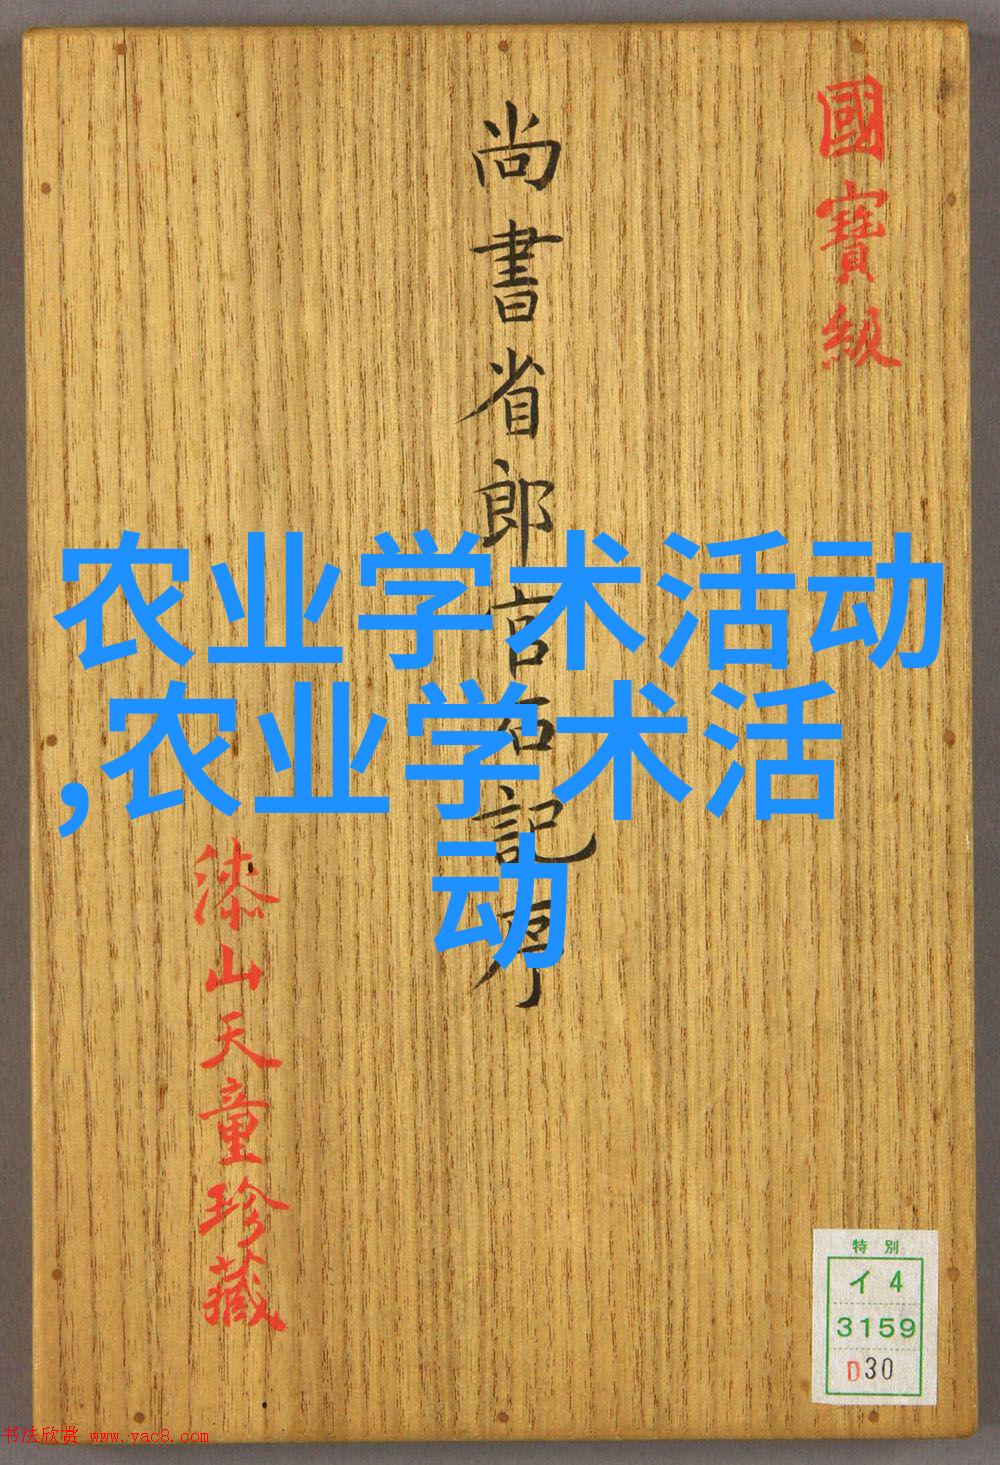 國寶級
尚書省郎官石記序
漆山天童珍藏
农业学术活动
,农业学术活
动
特別
イ4
3159
D30
书法欣赏 www.yac8.com